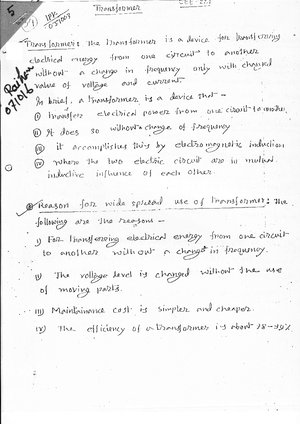 Transformer
EEE-223
5
(1)
Raihan
07/01/6
Transformer: The transformer is a device for transferring
electrical energy from one circuit to another
without a change in frequency only with changed
value of voltage and current.
In brief, a transformer is a device that -
(i) transfers electrical power from one circuit to another.
(ii) It does so without change of frequency
(iii) it accomplishes this by electromagnetic induction
(iv) where the two electric circuit are in mutual
inductive influence of each other
Reason for wide spread use of transformer: The
following are the reasons -
i) For transferring electrical energy from one circuit
to another without a change in frequency.
ii) The voltage level is changed without the use
of moving parts.
iii) Maintainance cost is simpler and cheaper.
iv) The efficiency of a transformer is about 98-99%